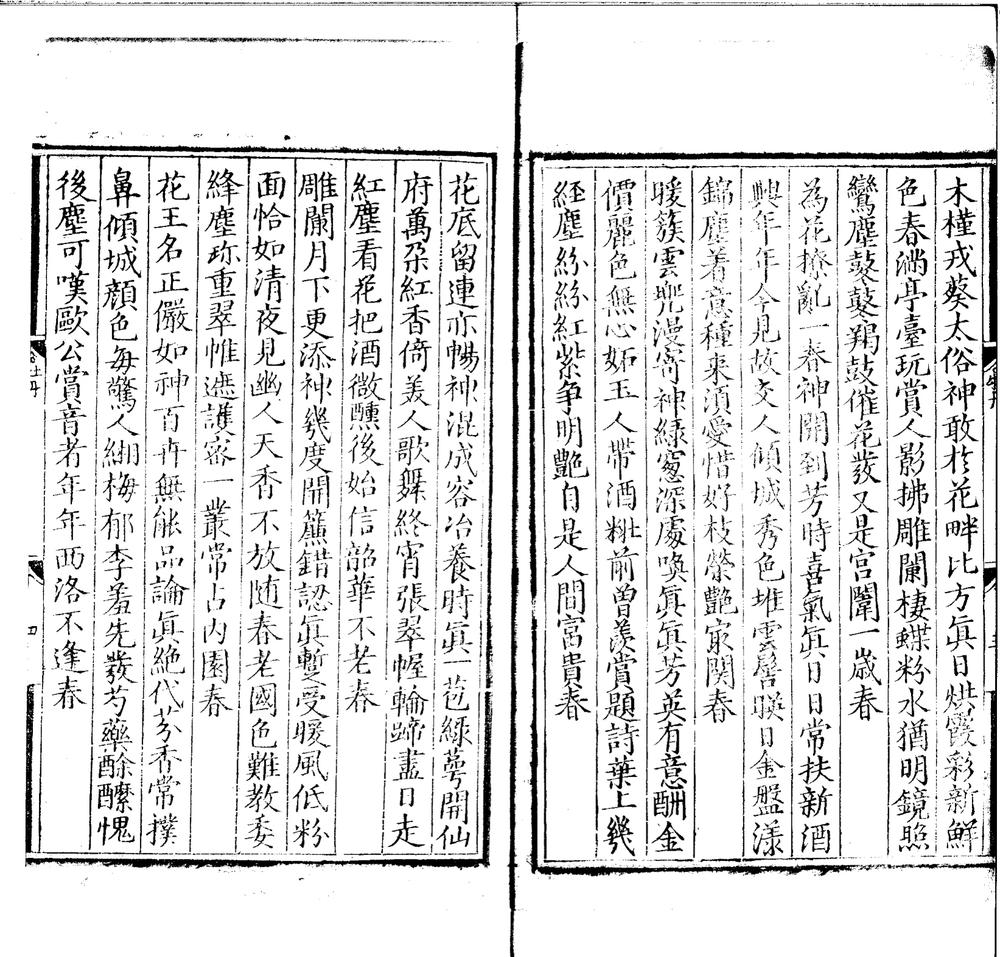 木槿戎葵太俗神敢於花畔比方眞日烘霞彩新鮮
色春滿亭臺玩賞人影拂雕闌棲蝶粉水猶明鏡照
鸞塵鼕鼕羯鼓催花發又是宮闈一歲春
為花撩亂一春神開到芳時喜氣眞日日常扶新酒
興年年今見故交人傾城秀色堆雲髻暎日金盤漾
錦塵着意種來須愛惜好枝榮艷冣関春
暖簇雲兠漫寄神綠窓深處喚眞眞芳英有意酬金
價麗色無心妬玉人帶酒粧前曾羨賞題詩葉上幾
經塵紛紛紅紫爭明艷自是人間富貴春
花底留連亦暢神混成容冶養時眞一苞綠萼開仙
府萬朶紅香倚美人歌舞終宵張翠幄輪蹄盡日走
紅塵看花把酒微醺後始信韶華不老春
雕闌月下更添神幾度開簾錯認眞暫受暖風低粉
面恰如清夜見幽人天香不放随春老國色難教委
絳塵珎重翠帷遮護密一叢常占内園春
花王名正儼如神百卉無能品論眞絶代芬香常撲
鼻傾城顔色每驚人緗梅郁李羞先發芍藥酴醿愧
後塵可嘆歐公賞音者年年西洛不逢春
四